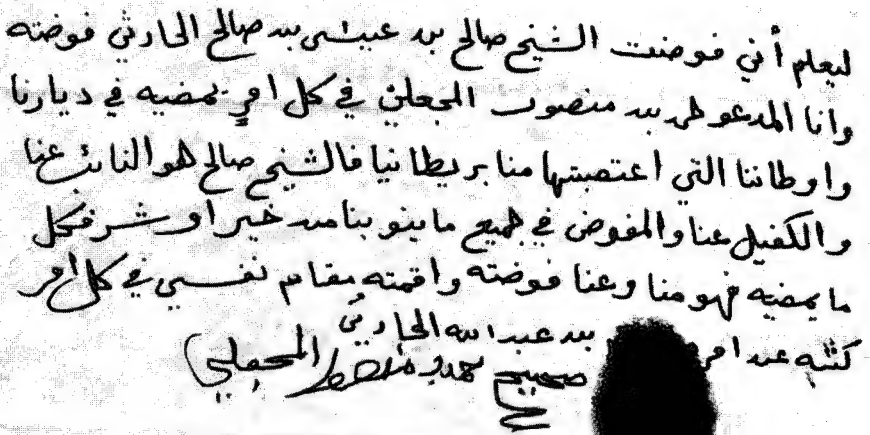 ليعلم أني فوضت الشيخ صالح بن عيسى بن صالح الحارثي فوضته
وانا المدعو حمد بن منصور المجعلي في كل امرٍ يمضيه في ديارنا
واوطاننا التي اغتصبتها منا بريطانيا فالشيخ صالح هو النائب عنا
والكفيل عنا والمفوض في جميع ما ينوبنا من خير او شر فكل
ما يمضيه فهو منا وعنا فوضته واقمته مقام نفسي في كل امر
كتبه عن امره بن عبدالله الحارثي
صحيح حمد بن منصور المجعلي